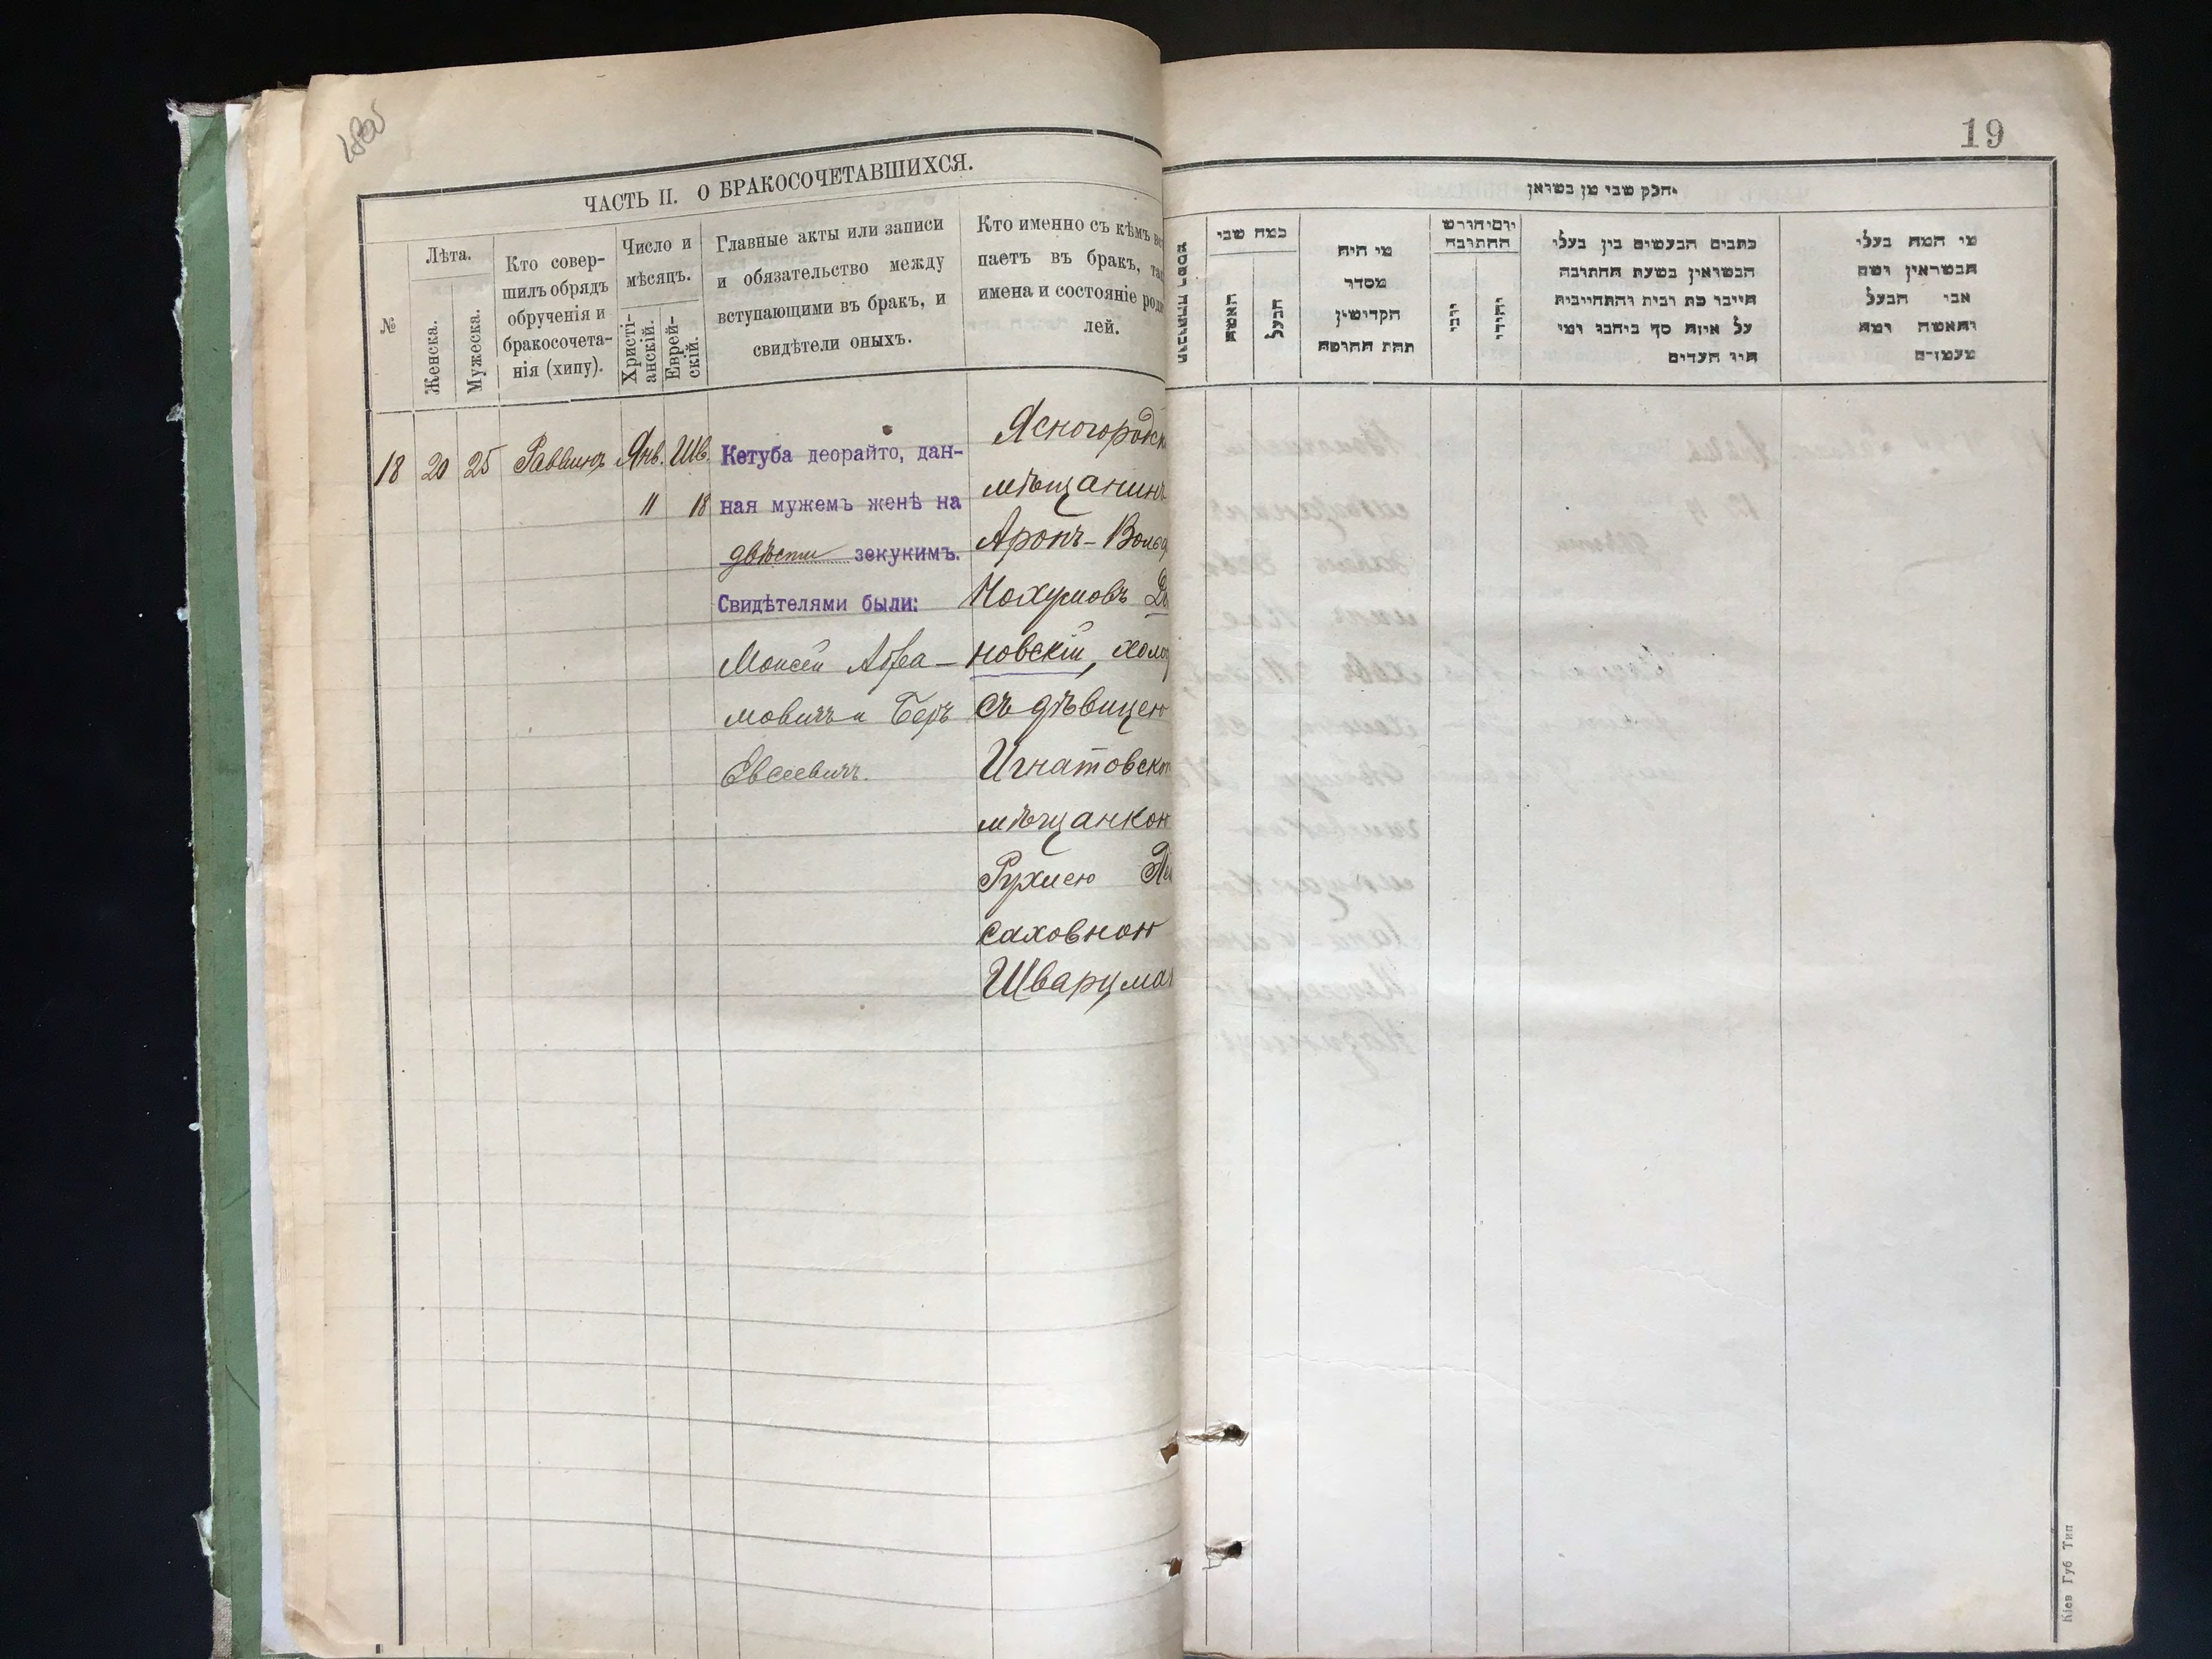 19
ЧАСТЬ II. О БРАКОСОЧЕТАВШИХСЯ.
№
Лѣта.
Женска.
Мужеска.
Кто совер-
шилъ обрядъ
обрученія и
бракосочета-
нія (хипу).
Число и
мѣсяцъ.
Христі-
анскій.
Еврей-
скій.
Главные акты или записи
и обязательство между
вступающими въ бракъ, и
свидѣтели оныхъ.
Кто именно съ кѣмъ
паетъ въ бракъ,
имена и состояніе
лей.
18 20 25 Раввинъ Янв. Шв.
11 18
Кетуба деорайто, дан-
ная мужемъ женѣ на
двѣсти зекукимъ.
Свидѣтелями были:
Моисей Абра-
мовичъ и Беръ
Евсеевичъ.
Ясногородск
мѣщанинъ
Аронъ-Вольф
Нохумовъ
новскій, холос
съ дѣвицею
Игнатовско
мѣщанкою
Рухлею
саховною
Шварцман
חלק שני מן נשואן
כמה שני
האשה
הבעל
מי היה
מסדר
הקדושין
תחת החופה
יום וחודש
החתונה
נוצרי
יהודי
כתבים הנעשים בין בעלי
הנשואין בשעת החתונה
חייבי כת ובית והתחייבות
על איזה סך ביחבו ומי
היו העדים
מי המה בעלי
הנשואין ושם
אבי הבעל
והאשה ומה
מעמדם
Кіев Губ Тип